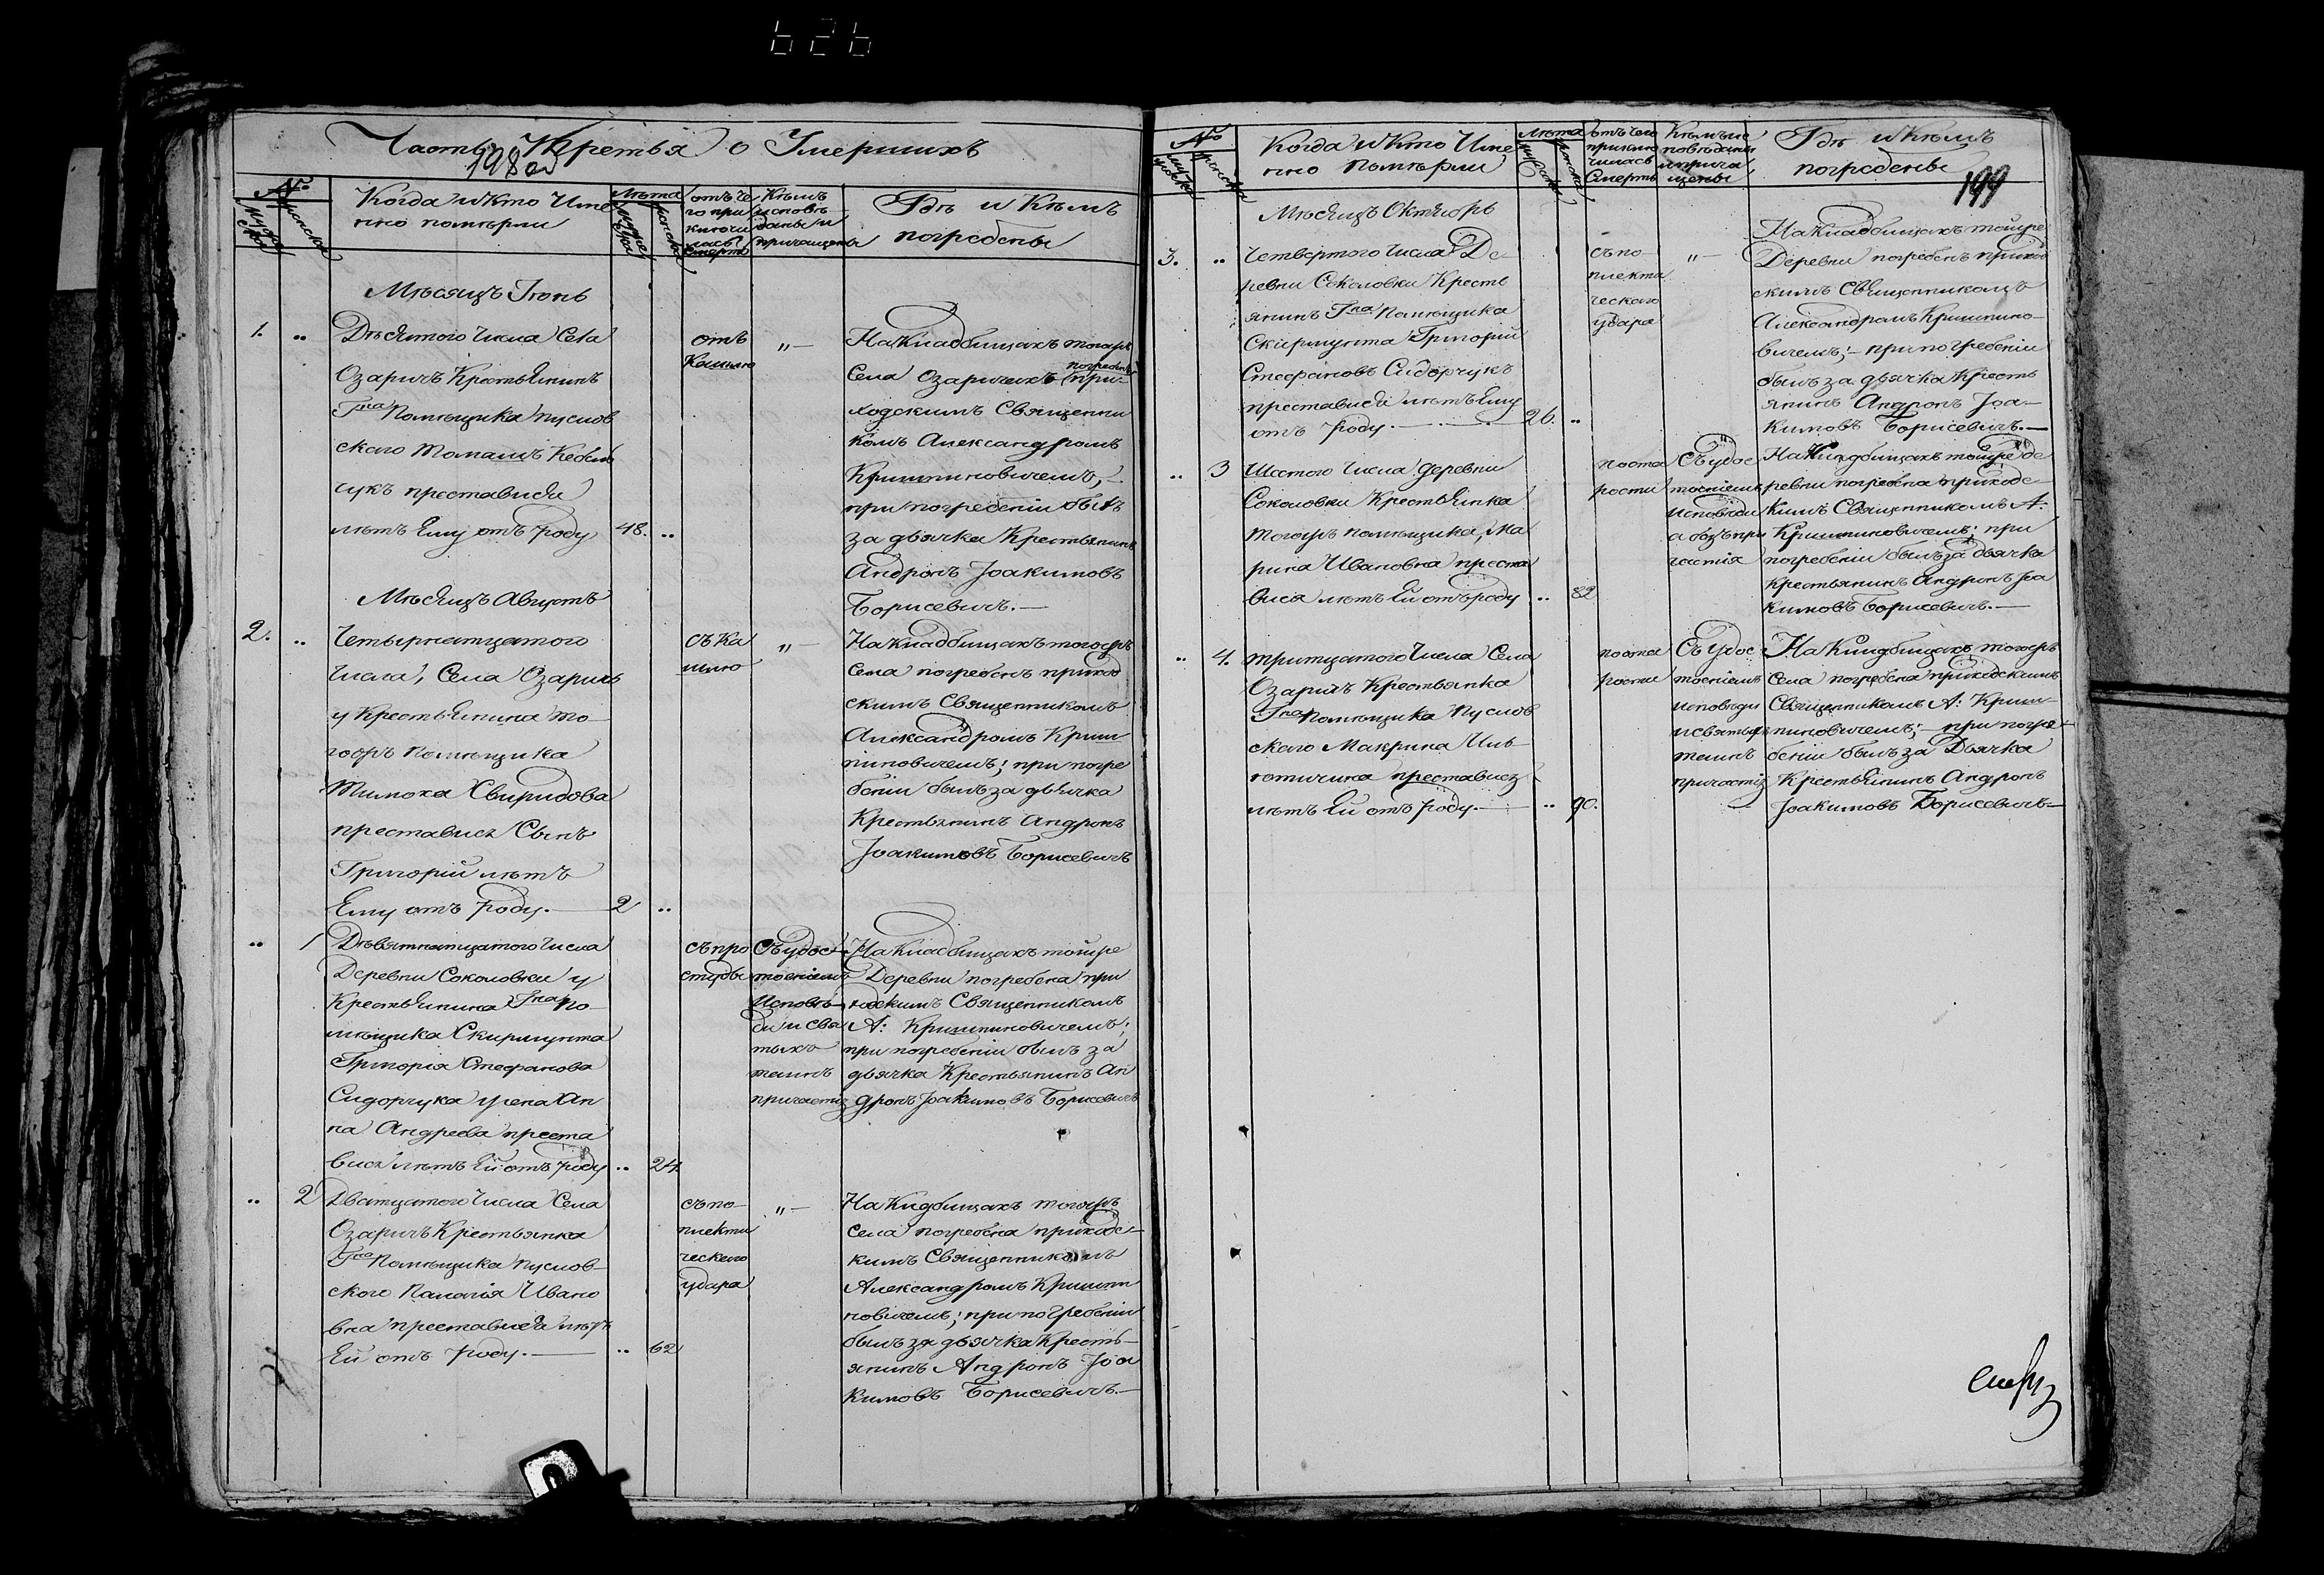 626
Часть Третья о Умершихъ
198 об
№
мужска
женска
Когда и кто Име
нно померли
Лѣта
мужска
женска
отъ че
го при
ключи
лась
смерть
Кѣмъ
исповѣ-
даны и
причащены
Гдѣ и Кѣмъ
погребены
Мѣсяцъ Iюнь
1. „ Дѣсятого числа Села
Озаричъ Крестьянинъ
Гна Помѣщика Пуслов
ского Томашъ Кебль
чукъ преставися
лѣтъ Ему отъ роду 48. „
отъ
Кашлю
„ —
На Кладбищахъ тогожъ
Села Озаричахъ погребенъ при-
ходскимъ Священни
комъ Александромъ
Кришпиновичемъ, —
при погребеніи былъ
за дьячка Крестьянинъ
Андронъ Iоакимовъ
Борисевичъ. —
Мѣсяцъ Августъ
2. „ Четырнатцатого
Числа, Села Озаричъ
у Крестьянина то-
гожъ Помѣщика
Тимоха Свиридова
преставися Сынъ
Григорій лѣтъ
Ему отъ роду. — 2 „
съ ка
шлю
„ —
На кладбищахъ тогожъ
Села погребенъ приход
скимъ Священникомъ
Александромъ Криш
пиновичемъ; при погре
бении былъ за дьячка
Крестьянинъ Андронъ
Iоакимовъ Борисевичъ
„ 1 Дѣвятнатцатого Числа
Деревни Соколовки у
Крестьянина Гна По-
мѣщика Скирмунта
Григорія Стефанова
Сидорчука жена Ан
на Андреева преста
вися лѣтъ Ей отъ роду „ 24.
съ про
студы
Съ удос
тоеніемъ
Исповѣ-
ди и Свя
тыхъ
таинъ
причастія
На Кладбищахъ тойже
Деревни погребена при
ходскимъ Священникомъ
А: Кришпиновичемъ;
при погребеніи былъ за
дьячка Крестьянинъ Ан
дронъ Iоакимовъ Борисевичъ
„ 2 Дватцатого Числа Села
Озаричъ Крестьянка
Гна Помѣщика Пуслов-
ского Палагія Ивано
вна преставися лѣтъ
Ей отъ роду. — „ 62
съ по-
плекти
ческого
удара
„ —
На Кидбищахъ тогожъ
Села погребена приходс-
кимъ Священникомъ
Александромъ Кришпи
новичемъ; при погребеніи
былъ за дьячка Кресть-
янинъ Андронъ Iоа
кимовъ Борисевичъ. —
№
мужска
женска
Когда и кто Име
нно померли
Лѣта
мужска
женска
отъ чего
приклю
чилась
Смерть
Кѣмъ ис
повѣданы
и прича
щены
Гдѣ и кѣмъ
погребены
199
Мѣсяцъ Октябрь
3. „ Четвертого Числа Де-
ревни Соколовки Кресть
янинъ Гна Помѣщика
Скирмунта Григорій
Стефановъ Сидорчукъ
преставися лѣтъ Ему
отъ роду. — 26. „
съ по-
плекти
ческого
удара
„ —
На Кладбищахъ тойже
Деревни погребенъ приход
скимъ Священникомъ
Александромъ Кришпино-
вичемъ; — при погребеніи
былъ за дьячка Кресть
янинъ Андронъ Iоа-
кимовъ Борисевичъ. —
„ 3 Шестого Числа Деревни
Соколовки Крестьянка
тогожъ помѣщика, Ма
рина Ивановна преста
вися лѣтъ Ей отъ роду „ 82
по ста
рости
Съ удос
тоеніемъ
исповѣди
а безъ при
частія
На Кладбищахъ тойже де
ревни погребена приходс-
кимъ Священникомъ А:
Кришпиновичемъ; при
погребеніи былъ за дьячка
Крестьянинъ Андронъ Iоа
кимовъ Борисевичъ. —
„ 4. тритцатого Числа Села
Озаричъ Крестьянка
Гна Помѣщика Пуслов
ского Макрина Иль-
ютичина преставися
лѣтъ Ей отъ роду. — „ 90.
по ста
рости
Съ удос
тоеніемъ
исповѣди
и святыхъ
таинъ
причастія
—
На Кладбищахъ тогожъ
Села погребена приходскимъ
Священникомъ А: Криш-
пиновичемъ; — при погре-
беніи былъ за Дьячка
Крестьянинъ Андронъ
Iоакимовъ Борисевичъ —